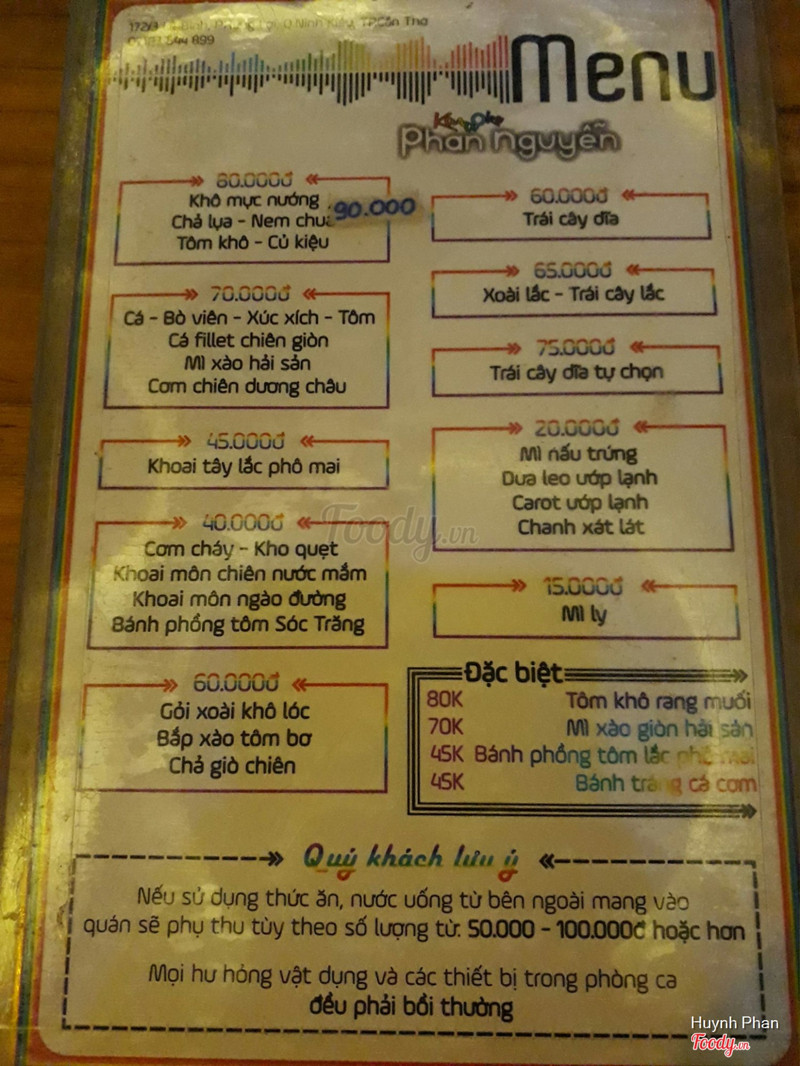 Ninh Kiều, TP.Cần Thơ
899
Menu
Phan Nguyễn
80.000đ
Khô mực nướng
90.000
Chả lụa - Nem chua
Tôm khô - Củ kiệu
70.000đ
Cá - Bò viên - Xúc xích - Tôm
Cá fillet chiên giòn
Mì xào hải sản
Cơm chiên dương châu
45.000đ
Khoai tây lắc phô mai
40.000đ
Cơm cháy - Kho quẹt
Khoai môn chiên nước mắm
Khoai môn ngào đường
Bánh phồng tôm Sóc Trăng
60.000đ
Gỏi xoài khô lóc
Bắp xào tôm bơ
Chả giò chiên
60.000đ
Trái cây dĩa
65.000đ
Xoài lắc - Trái cây lắc
75.000đ
Trái cây dĩa tự chọn
20.000đ
Mì nấu trứng
Dưa leo ướp lạnh
Carot ướp lạnh
Chanh xát lát
15.000đ
Mì ly
Đặc biệt
80K Tôm khô rang muối
70K Mì xào giòn hải sản
45K Bánh phồng tôm lắc phô mai
45K Bánh tráng cá cơm
Quý khách lưu ý
Nếu sử dụng thức ăn, nước uống từ bên ngoài mang vào
quán sẽ phụ thu tùy theo số lượng từ: 50.000 - 100.000đ hoặc hơn
Mọi hư hỏng vật dụng và các thiết bị trong phòng ca
đều phải bồi thường
Foody.vn
Huynh Phan
Foody.vn